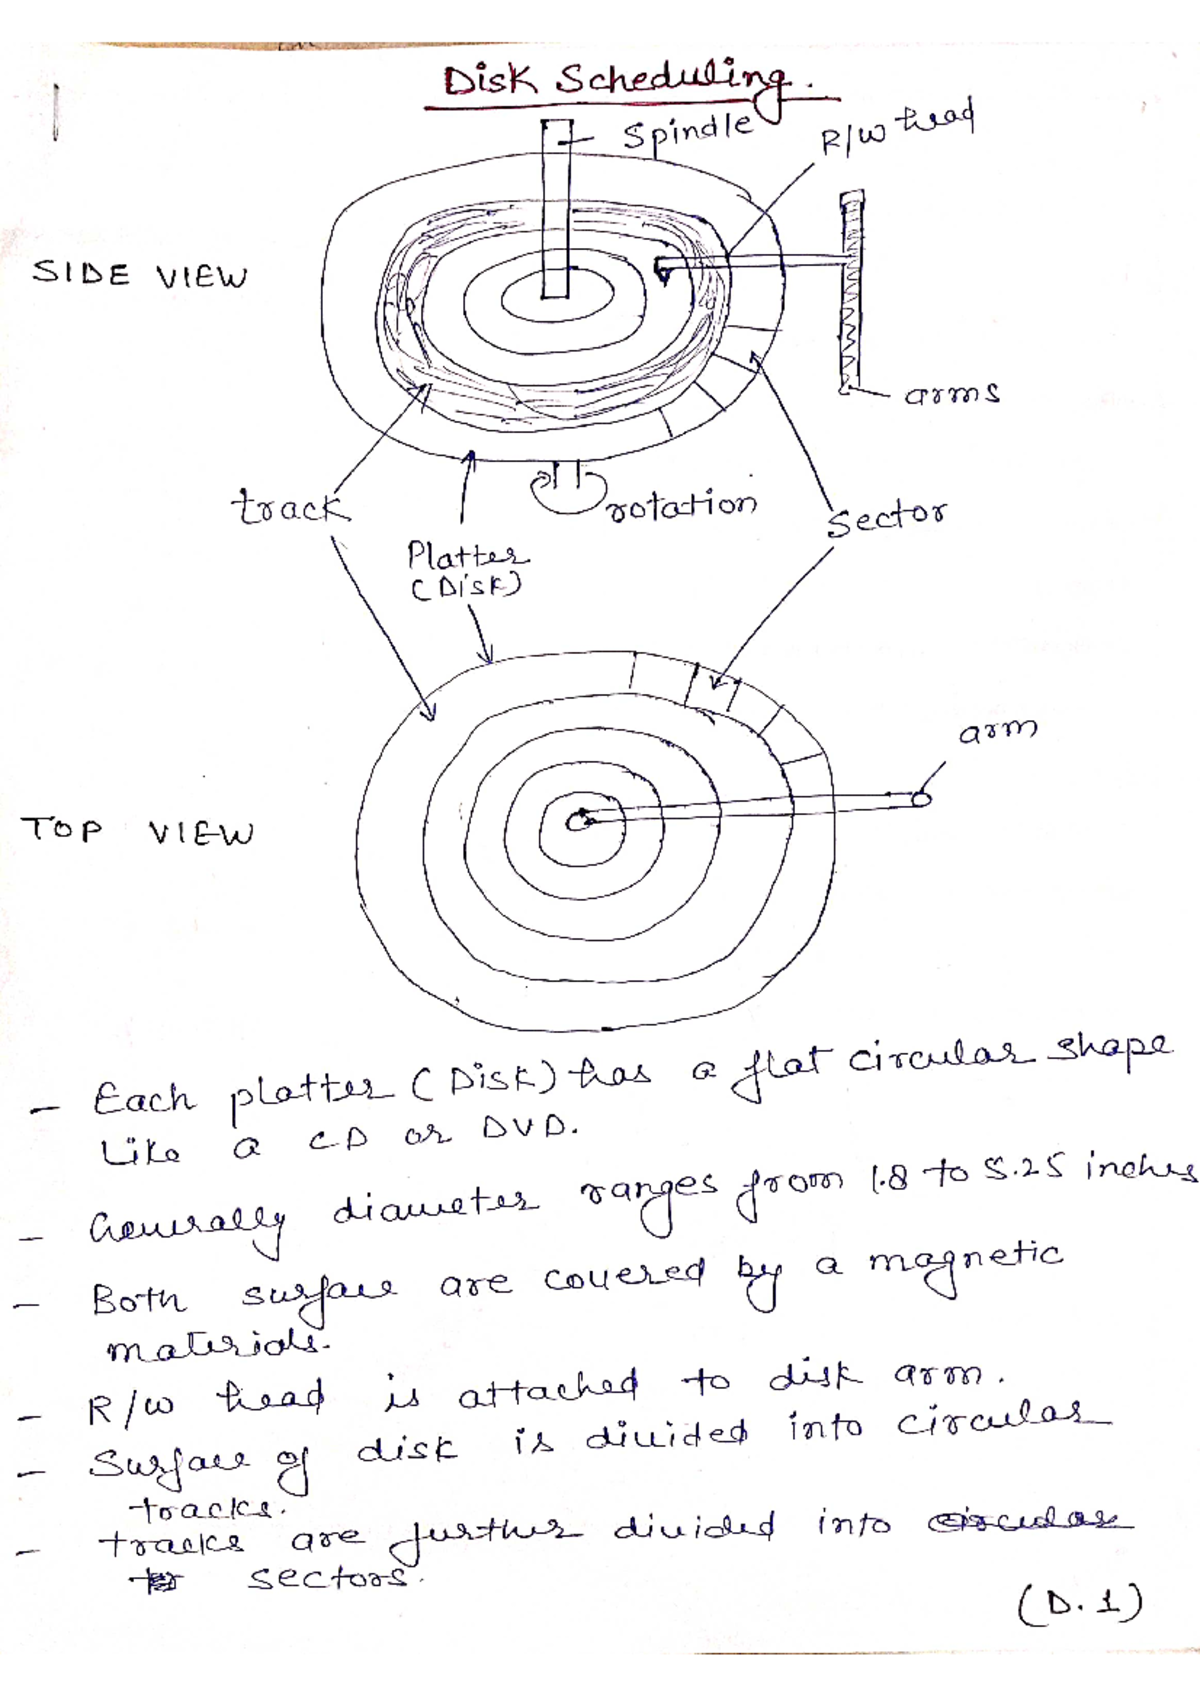 Disk Scheduling.
Spindle
R/W head
SIDE VIEW
arms
track
rotation
Sector
Platter
(Disk)
arm
TOP VIEW
- Each platter (Disk) has a flat circular shape
Like a CD or DVD.
- Generally diameter ranges from 1.8 to 5.25 inches
- Both surface are covered by a magnetic
materials.
- R/W head is attached to disk arm.
- Surface of disk is divided into circular
tracks.
- tracks are further divided into circular
sectors.
(D.1)